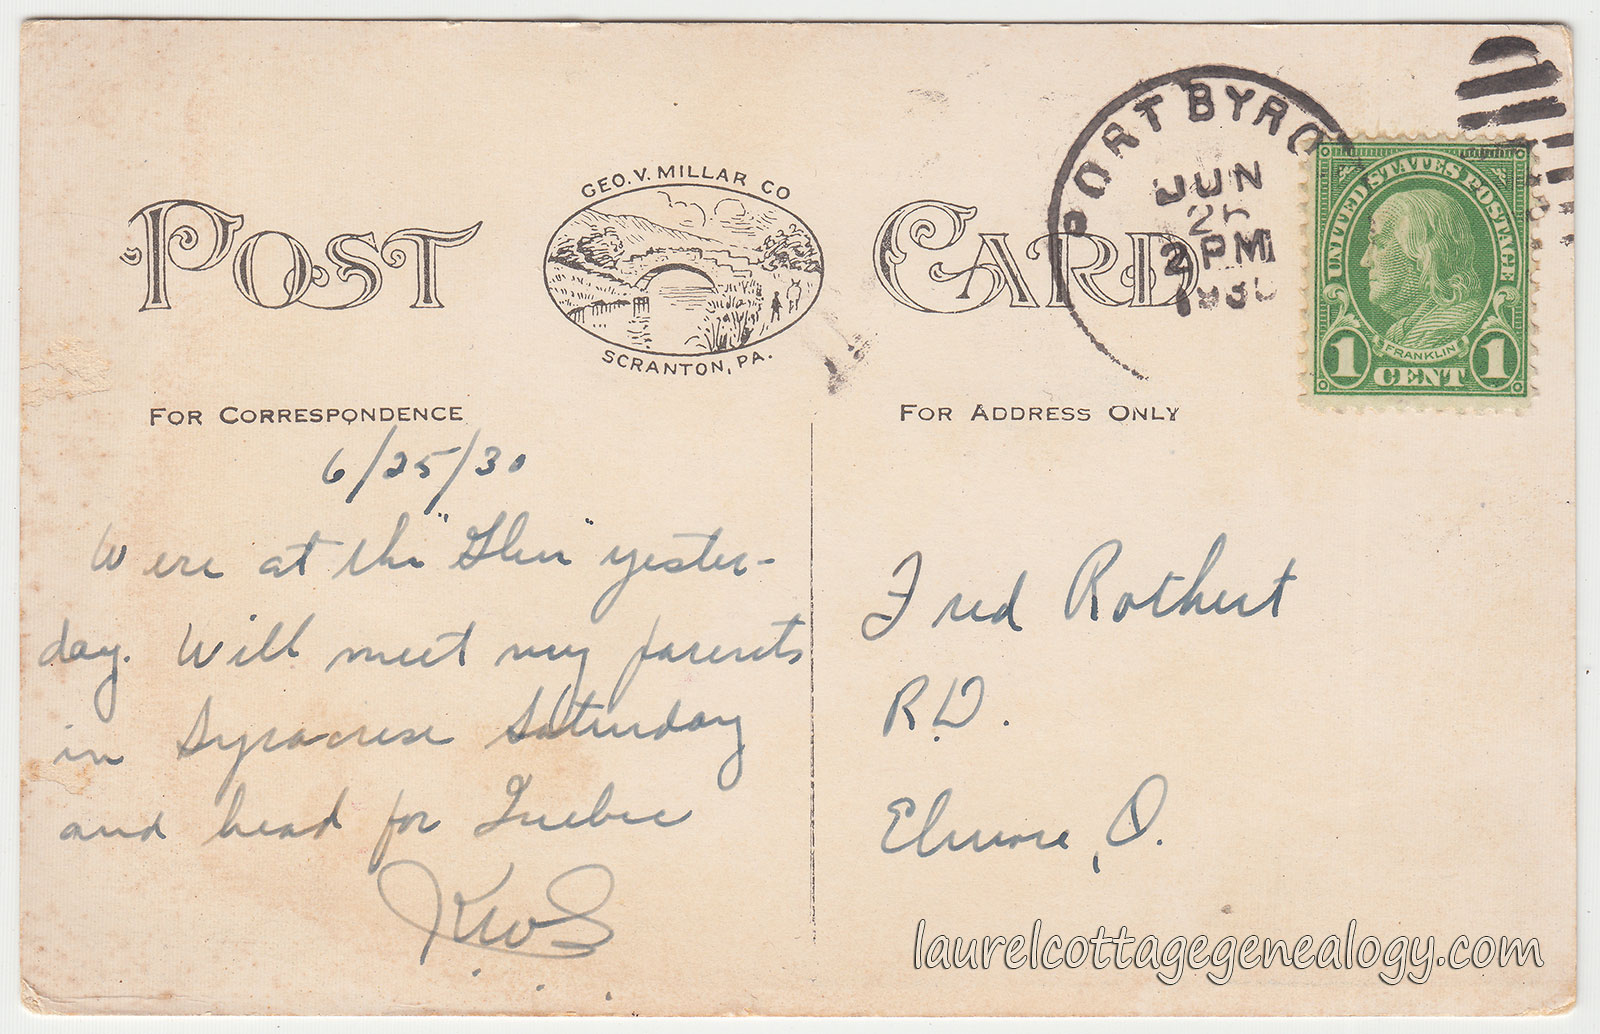 GEO. V. MILLAR CO
POST CARD
SCRANTON, PA.
FOR CORRESPONDENCE
6/25/30
Were at the "Glen" yester-
day. Will meet my parents
in Syracuse Saturday
and head for Quebec
KWS
FOR ADDRESS ONLY
PORT BYRO
JUN
25
2 PM
1930
UNITED STATES POSTAGE
FRANKLIN
1 CENT 1
Fred Rothert
R.D.
Elmore, O.
laurelcottagegenealogy.com